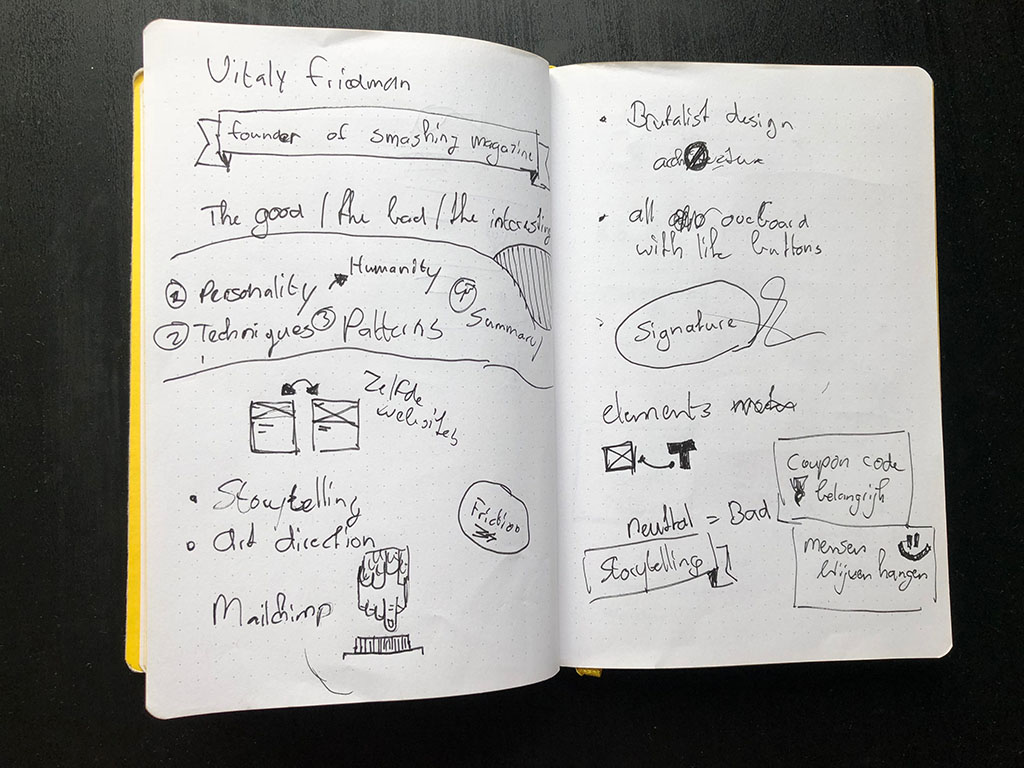 Vitaly Friedman
founder of smashing magazine
The good / the bad / the interesting
① Personality
Humanity
② Techniques
③ Patterns
④ Summary
Zelfde
websites
• Storytelling
• Art direction
Friction
Mailchimp
• Brutalist design
• all
with like buttons
Signature
elements
neutral = Bad
Storytelling
Coupon code
belangrijk
mensen
blijven hangen